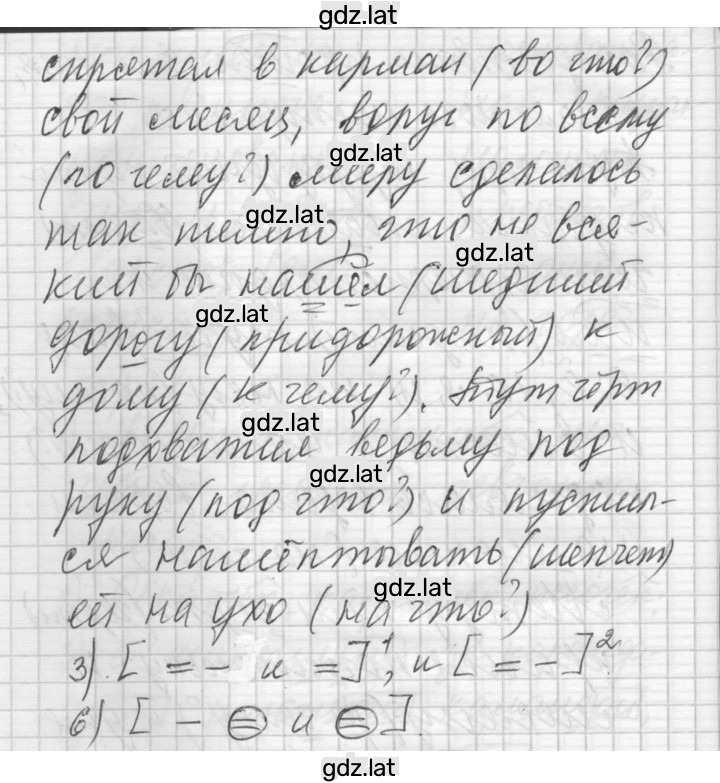 gdz.lat
спрятал в карман (во что?)
свой месяц, вдруг по всему
gdz.lat
(по чему?) миру сделалось
gdz.lat
так темно, что не вся-
gdz.lat
кий бы нашёл (шедший
gdz.lat
дорогу (придорожный) к
дому (к чему?). Тут чёрт
gdz.lat
подхватил ведьму под
gdz.lat
руку (под что?) и пустил-
ся нашёптывать (шепчет)
gdz.lat
ей на ухо (на что?)
3) [ = – и = ]¹, и [ = – ]².
6) [ – = и = ].
gdz.lat